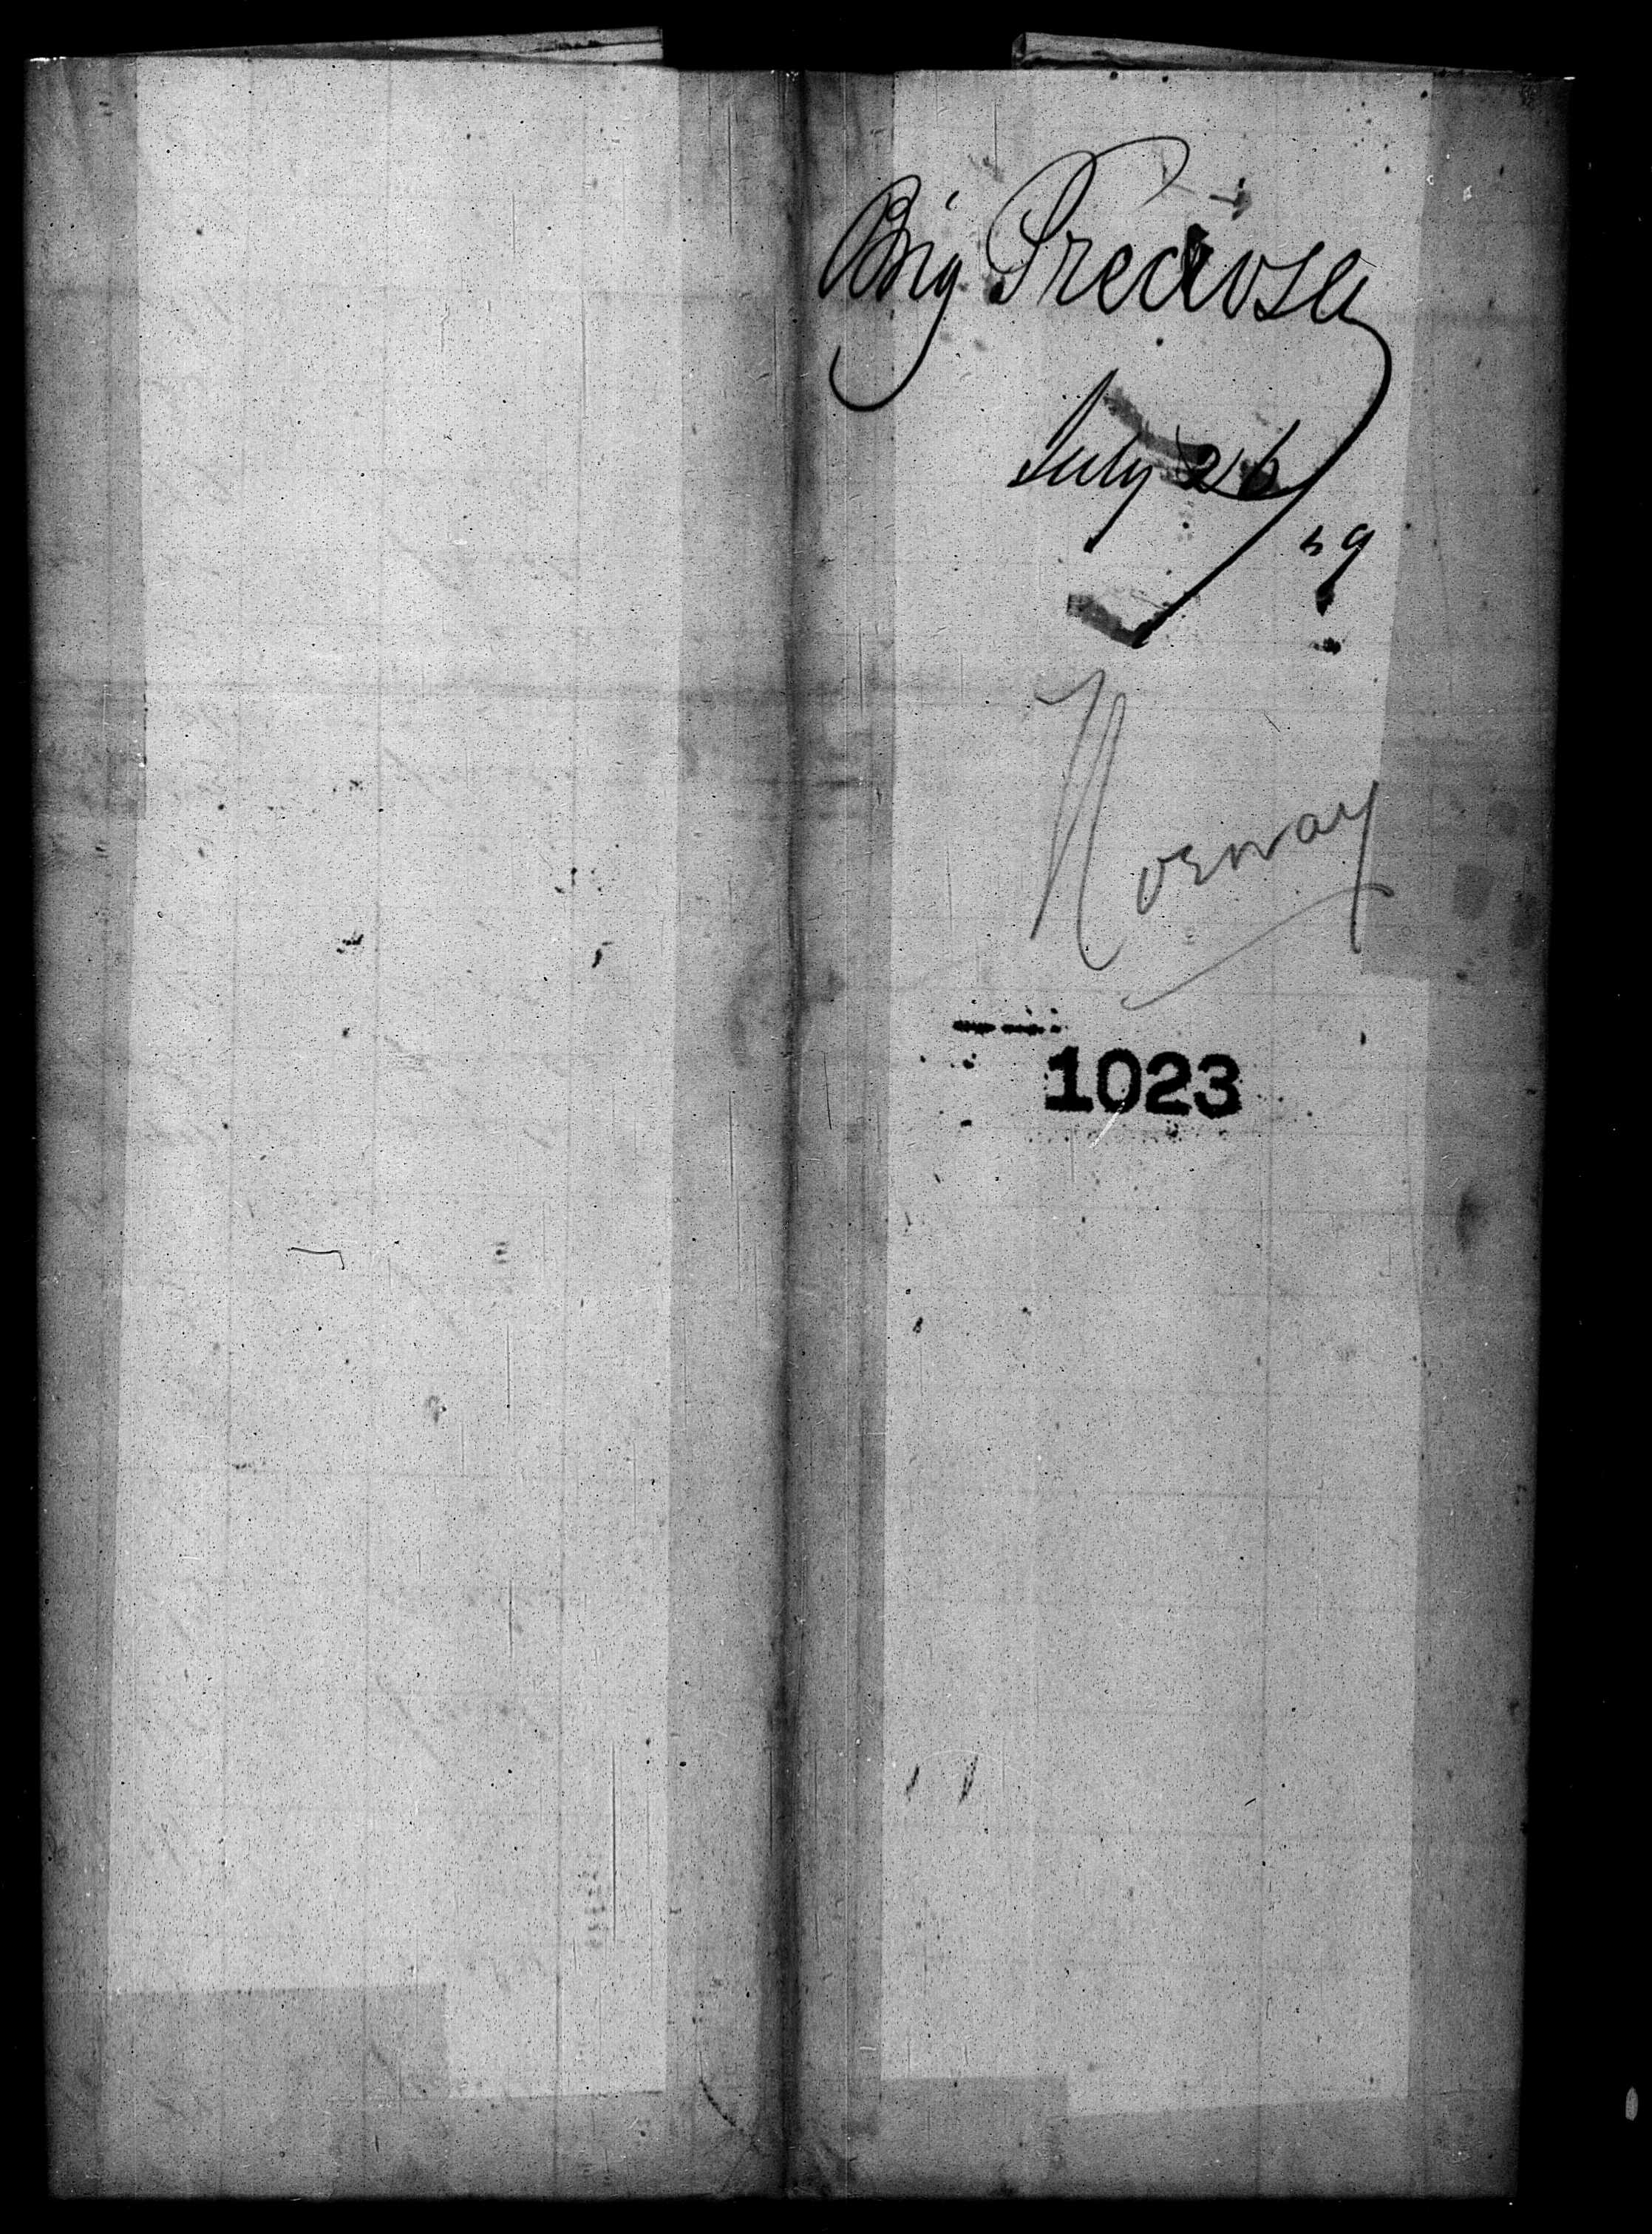 Brig Preciosa
July 26
59
Norway
1023